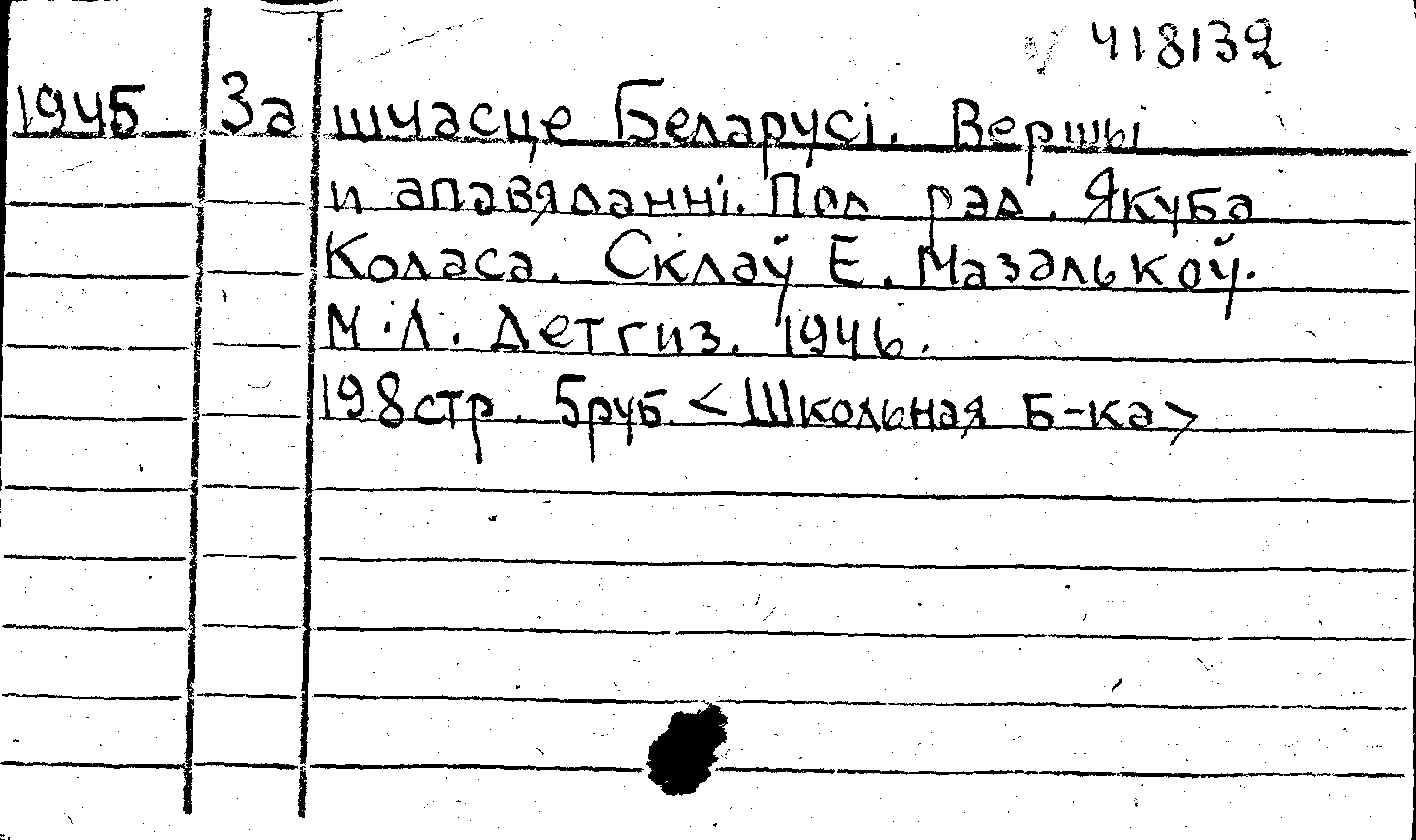 418132
1945 За шчасце Беларусі. Вершы
и апавяданні. Пол рэд. Якуба
Коласа. Склаў Е. Мазалькоў.
М.Л. Детгиз. 1946.
198стр. 5руб <Школьная Б-ка>